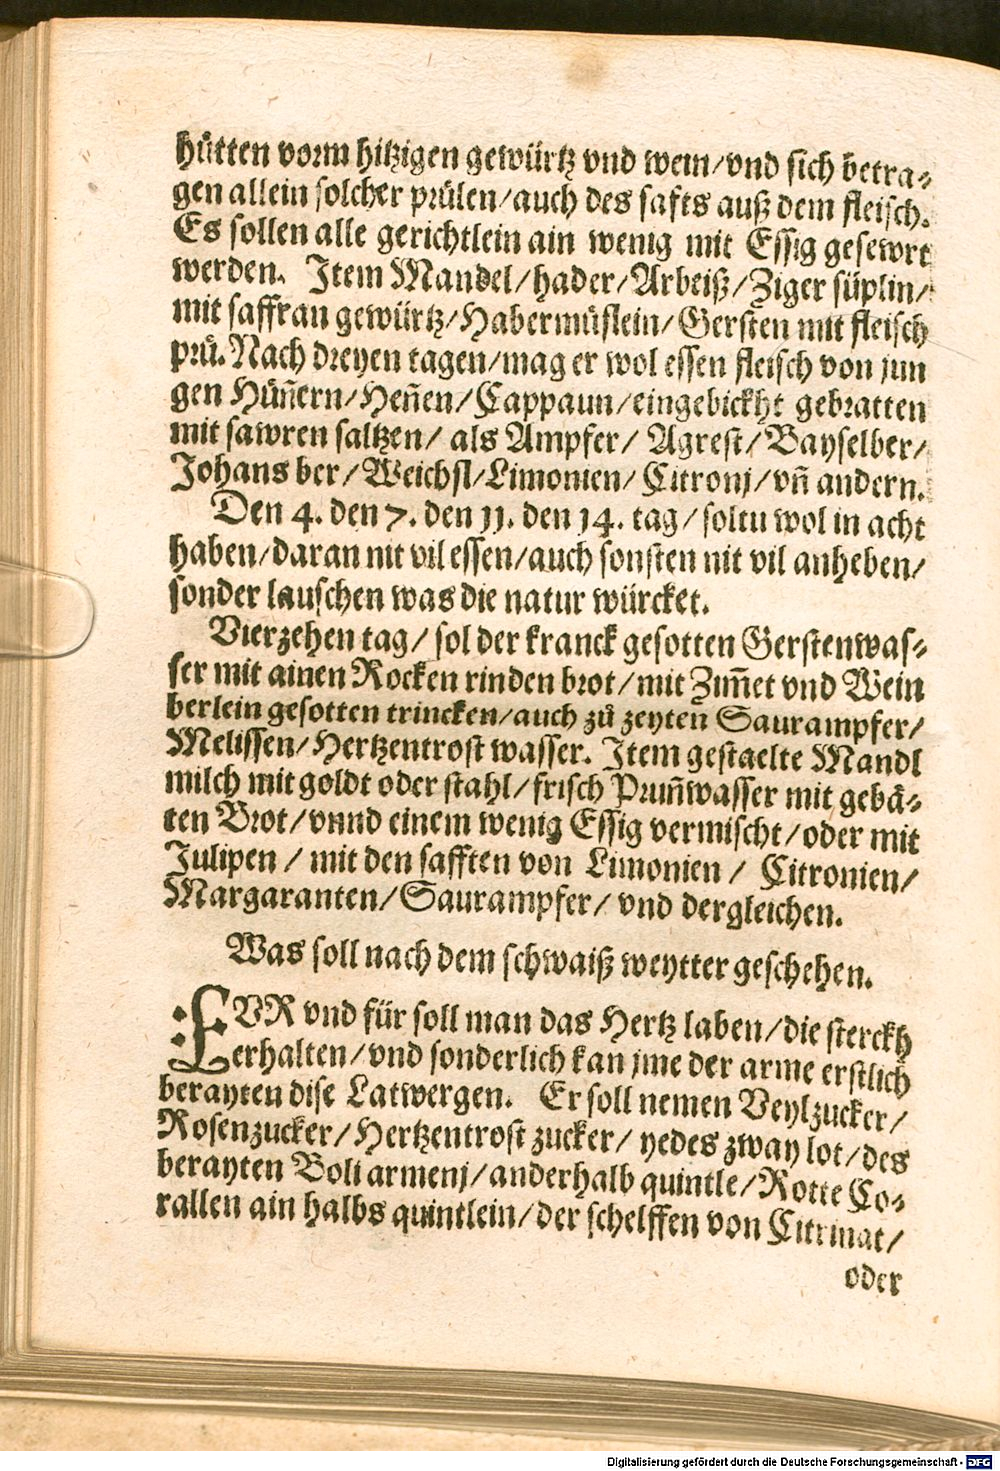 hütten vorm hitzigen gewürtz vnd wein/vnd sich betra⸗
gen allein solcher prülen/auch des safts auß dem fleisch.
Es sollen alle gerichtlein ain wenig mit Essig gesewrt
werden. Item Mandel/hader/Arbeiß/Ziger süplin/
mit saffran gewürtz/Habermüslein/Gersten mit fleisch
prü. Nach dreyen tagen/mag er wol essen fleisch von jun
gen Hün̄ern/Hen̄en/Cappaun/eingebickht gebratten
mit sawren saltzen/ als Ampfer/ Agrest/Bayselber/
Johans ber/Weichsl/Limonien/Citronj/vn̄ andern.
Den 4. den 7. den 11. den 14. tag/soltu wol in acht
haben/daran nit vil essen/auch sonsten nit vil anheben/
sonder lauschen was die natur würcket.
Vierzehen tag/ sol der kranck gesotten Gerstenwas⸗
ser mit ainen Rocken rinden brot/mit Zim̄et vnd Wein
berlein gesotten trincken/auch zů zeyten Saurampfer/
Melissen/Hertzentrost wasser. Item gestaelte Mandl
milch mit goldt oder stahl/frisch Prun̄wasser mit gebä⸗
ten Brot/vnnd einem wenig Essig vermischt/oder mit
Julipen / mit den safften von Limonien / Citronien/
Margaranten/Saurampfer/ vnd dergleichen.
Was soll nach dem schwaiß weytter geschehen.
FVR vnd für soll man das Hertz laben/die sterckh
erhalten/vnd sonderlich kan jme der arme erstlich
berayten dise Latwergen. Er soll nemen Veylzucker/
Rosenzucker/Hertzentrost zucker/ yedes zway lot/des
berayten Boli armenj/anderhalb quintle/Rotte Co⸗
rallen ain halbs quintlein/der schelffen von Citrinat/
oder
Digitalisierung gefördert durch die Deutsche Forschungsgemeinschaft - DFG